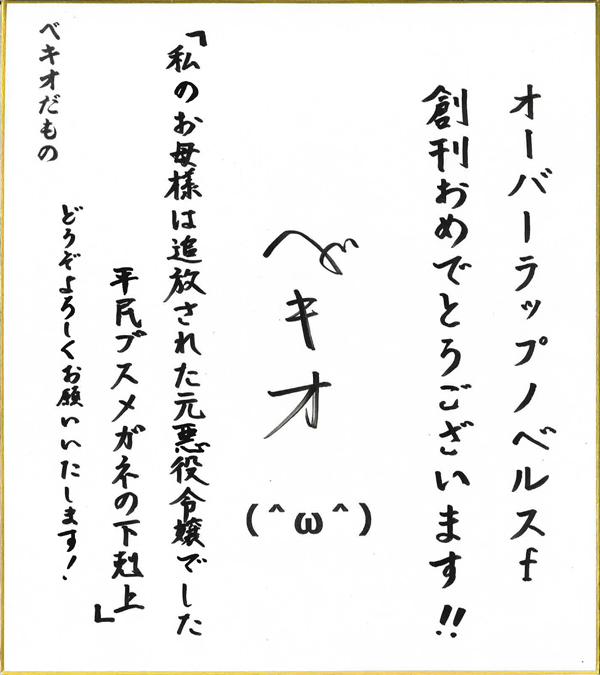 オーバーラップノベルスf
創刊おめでとうございます!!
ベキオ
(^ω^)
「私のお母様は追放された元悪役令嬢でした
平民ブスメガネの下剋上」
どうぞよろしくお願いいたします!
ベキオだもの